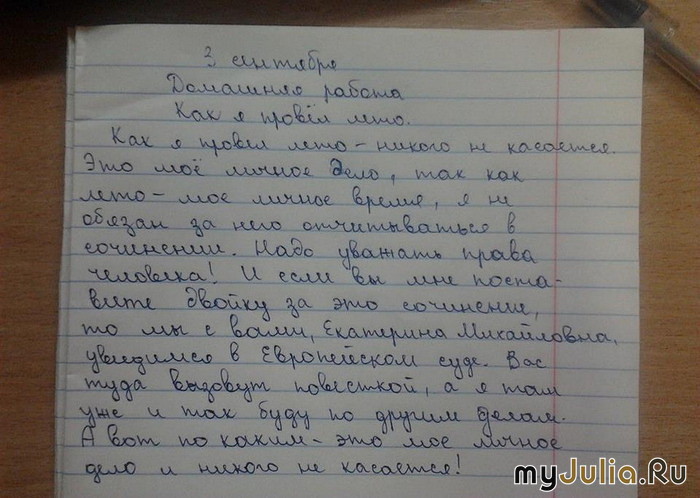 3 сентября
Домашняя работа
Как я провёл лето.
Как я провел лето - никого не касается.
Это моё личное дело, так как
лето - мое личное время, я не
обязан за него отчитываться в
сочинении. Надо уважать права
человека! И если вы мне поста-
вите двойку за это сочинение,
то мы с вами, Екатерина Михайловна,
увидимся в Европейском суде. Вас
туда вызовут повесткой, а я там
уже и так буду по другим делам.
А вот по каким - это мое личное
дело и никого не касается!
myJulia.Ru